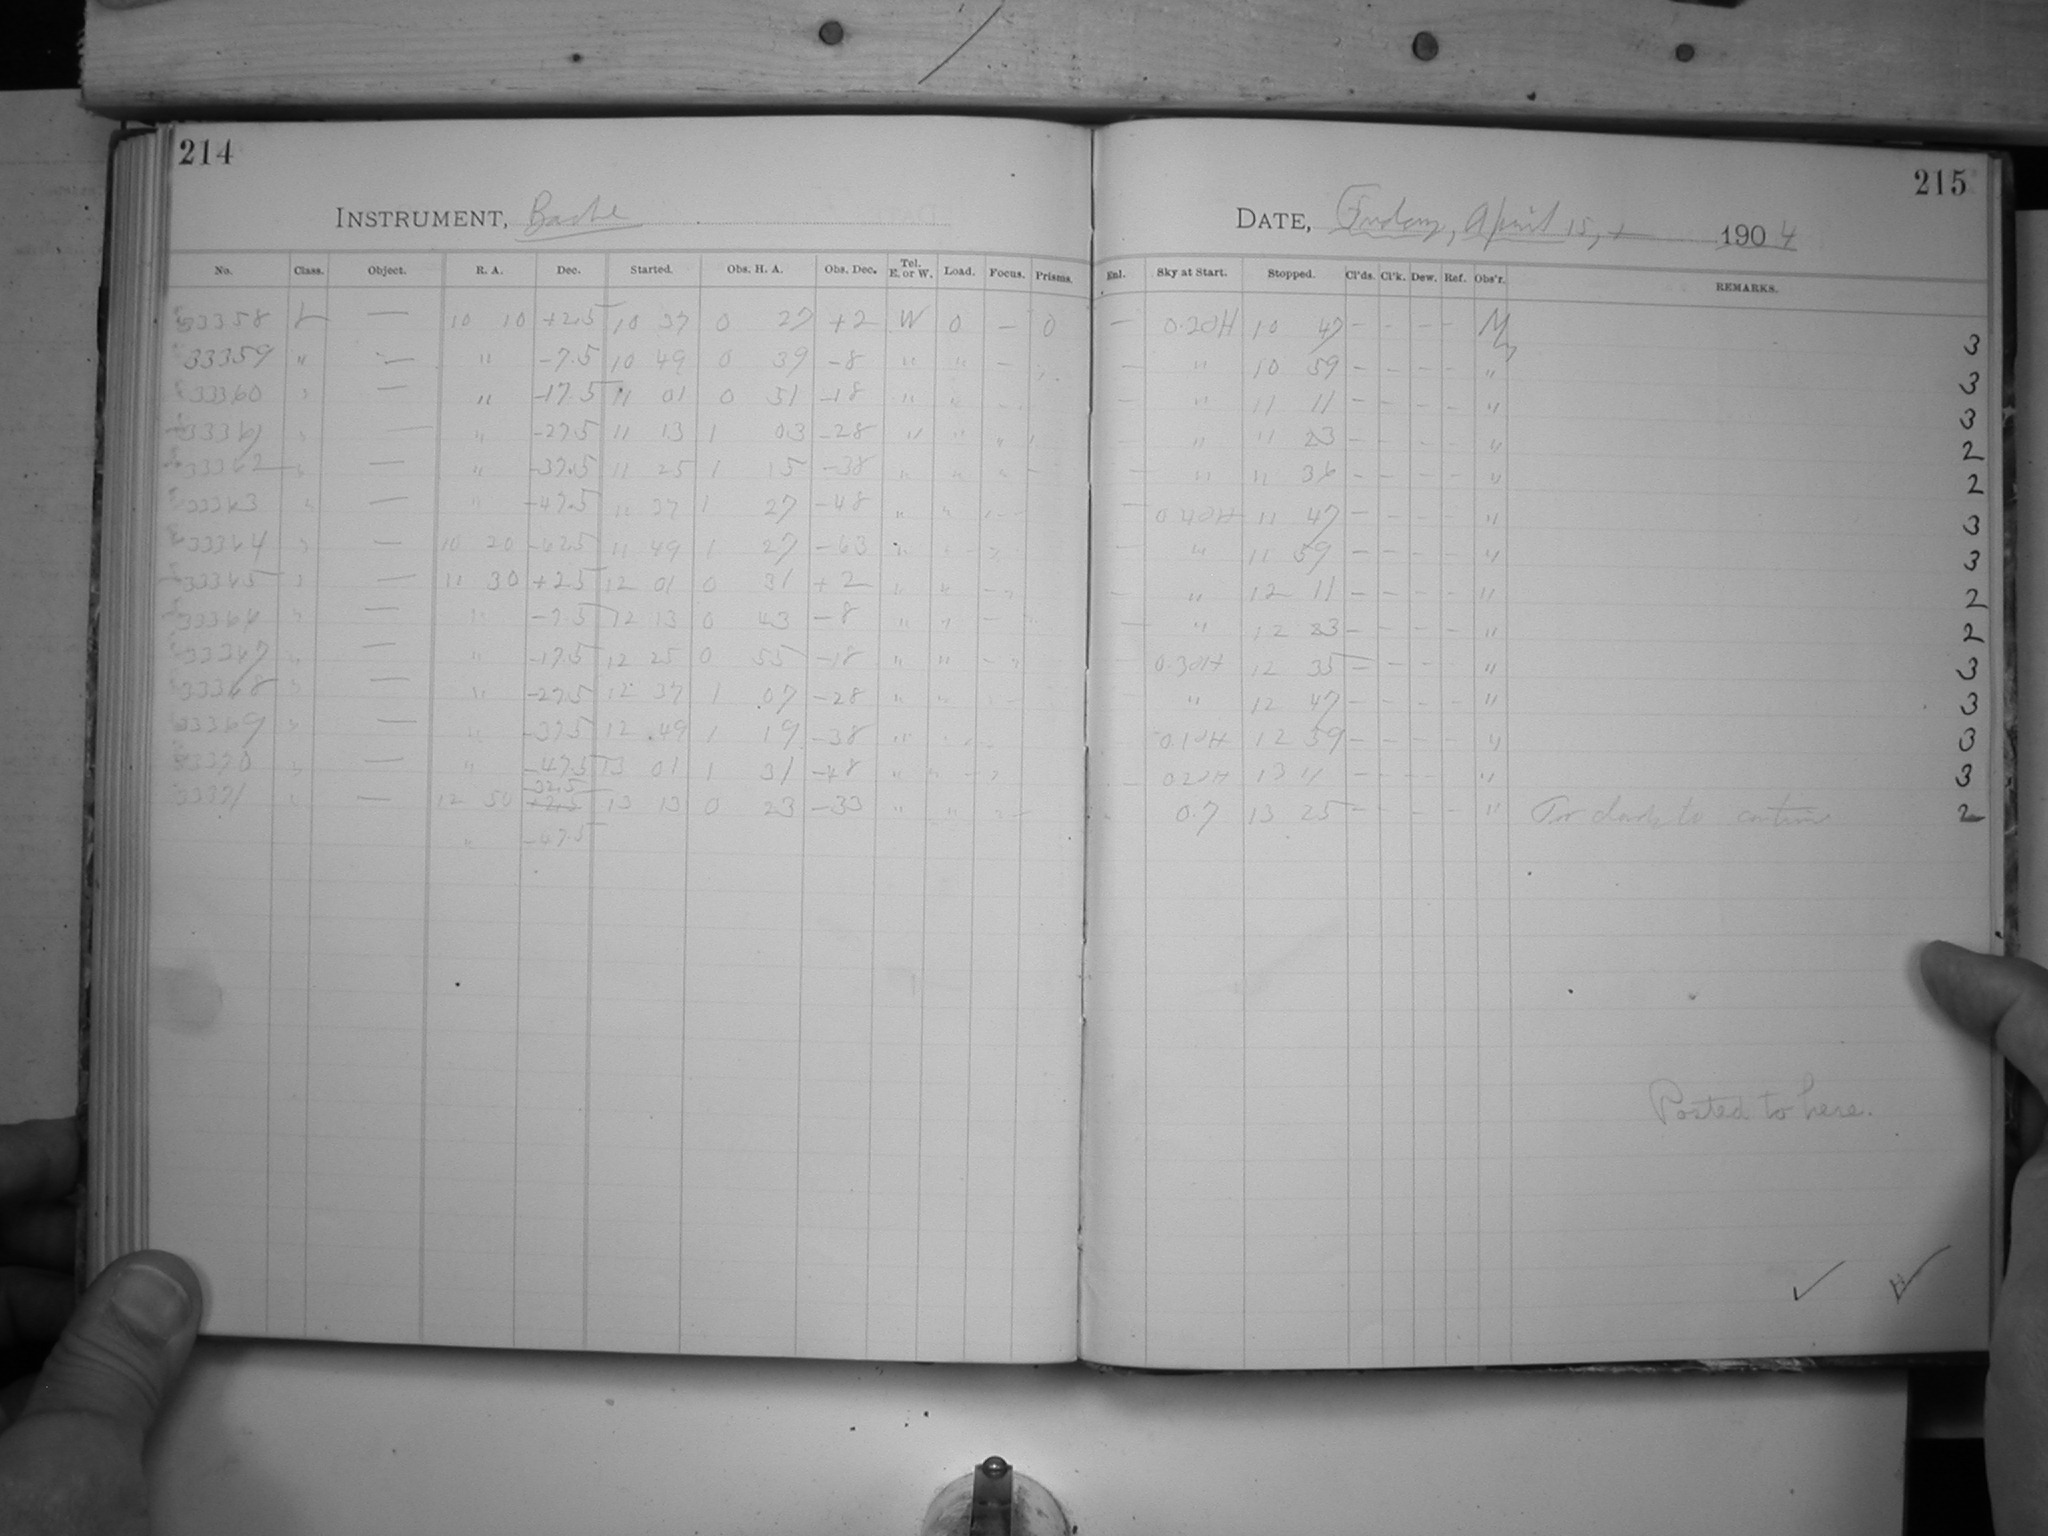 214
INSTRUMENT, Bache
No. Class. Object. R. A. Dec. Started. Obs. H. A. Obs. Dec. Tel. E. or W. Load. Focus. Prisms.
33358 L — 10 10 +2.5 10 37 0 27 +2 W 0 — 0
33359 " — " -7.5 10 49 0 39 -8 " " —
33360 " — " -17.5 11 01 0 51 -18 " "
33361 " — " -27.5 11 13 1 03 -28 " " "
33362 " — " -37.5 11 25 1 15 -38 " " "
33363 " — " -47.5 11 37 1 27 -48 " "
33364 " — 10 20 -62.5 11 49 1 27 -63 "
33365 " — 11 30 +2.5 12 01 0 31 +2 " "
33366 " — " -7.5 12 13 0 43 -8 " " —
33367 " — " -17.5 12 25 0 55 -18 " " — "
33368 " — " -27.5 12 37 1 07 -28 " "
33369 " — " -37.5 12 49 1 19 -38 "
33370 " — " -47.5 13 01 1 31 -48 " "
-32.5
33371 " — 12 50 +2.5 13 13 0 23 -33 " "
" -47.5
215
DATE, Friday, April 15, 1904
Enl. Sky at Start. Stopped. Cl'ds. Cl'k. Dew. Ref. Obs'r. REMARKS.
— 0.2cH 10 47 — — — — 3
— " 10 59 — — — — " 3
— " 11 11 — — — — " 3
" 11 23 — — — — " 2
— " 11 36 — — — — " 2
— 0.4cH 11 47 — — — — " 3
— " 11 59 — — — — " 3
— " 12 11 — — — — " 2
— " 12 23 — — — — " 2
— 0.3cH 12 35 — — — — " 3
" 12 47 — — — — " 3
0.1cH 12 59 — — — — " 3
0.2cH 13 11 — — — — " 3
0.7 13 25 — — — " Too cloudy to continue 2
Posted to here.